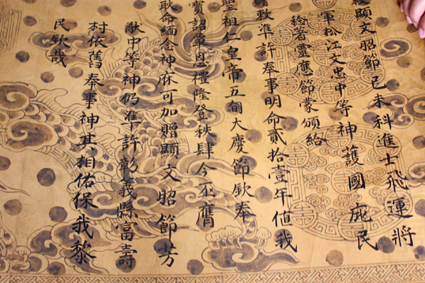 顯文昭節已本科進士飛運將
軍松江文忠中等神護國庇民
稔著靈應節蒙頒給
敕準許奉事明命貳拾壹年值我
聖祖仁皇帝五旬大慶節欽奉
寶詔覃恩禮隆登秩肆今丕膺
耿命緬念神庥可加贈顯文昭節方
猷中等神仍準許彰義縣富壽
村依舊奉事神其相佑保我黎
民欽哉